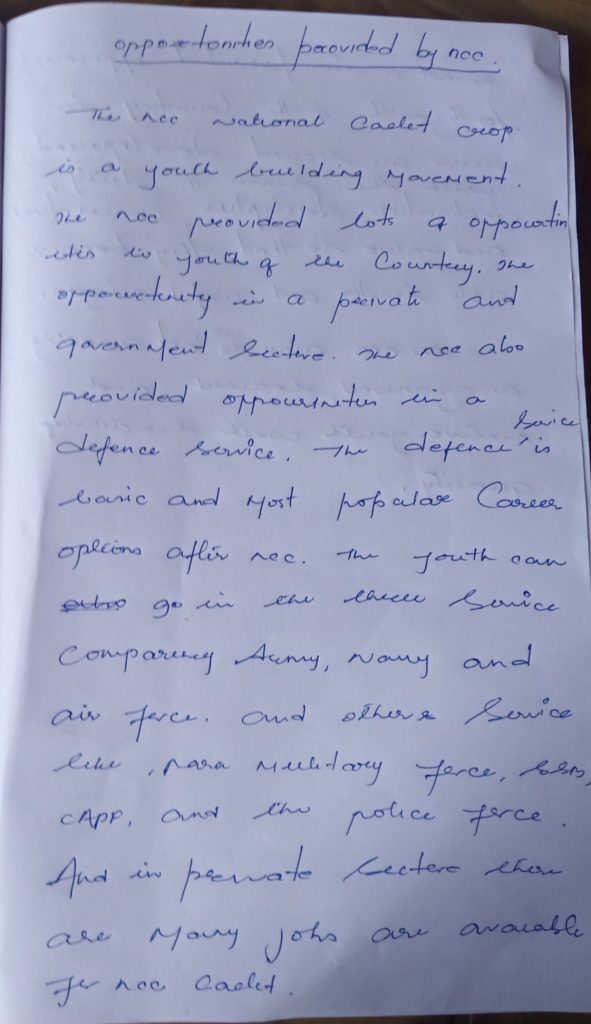 opportunities provided by ncc.
The ncc National Cadet corp
is a youth building movement.
The ncc provided lots of opportun
ities to youth of the Country. The
opportunity in a private and
government Sectore. The ncc also
provided opportunities in a
Service
defence service. The defence is
basic and most popular Career
options after ncc. The youth can
go in the three Service
Comparing Army, Navy and
air force. and others Service
like, para military force, SSB,
CAPF, and the police force.
And in private Sectore there
are many jobs are available
for ncc Cadet.